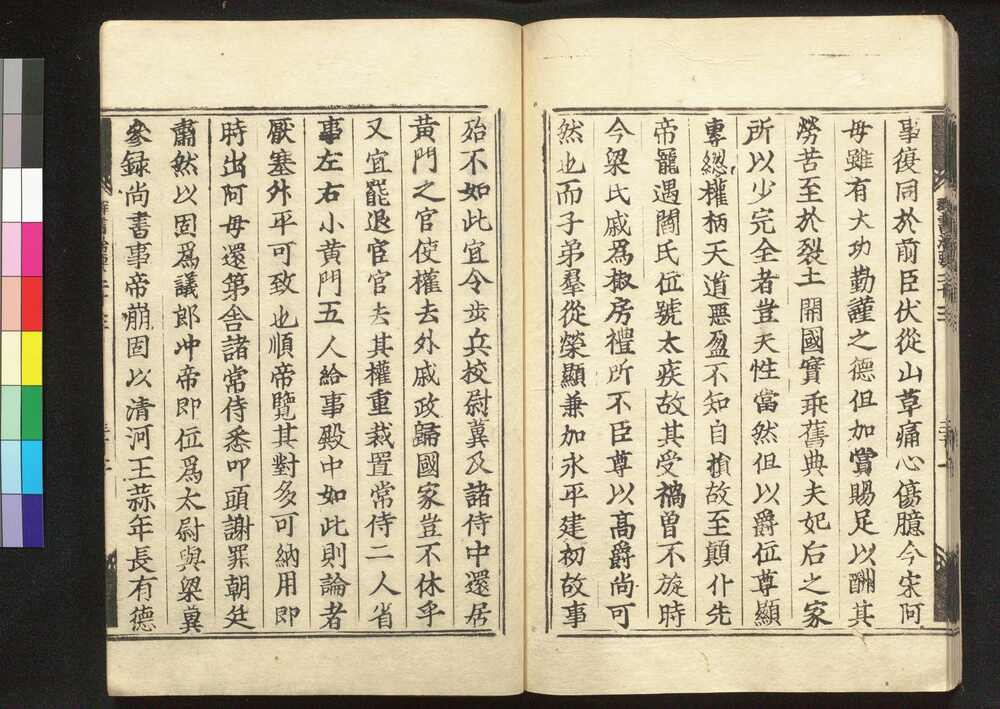 事復同於前臣伏從山草痛心傷臆今宋阿
母雖有大功勤謹之德但加賞賜足以酬其
勞苦至於裂土開國實乖舊典夫妃后之家
所以少完全者豈天性當然但以爵位尊顯
專總權柄天道惡盈不知自損故至顛仆先
帝寵遇閻氏位號太疾故其受禍曾不旋時
今梁氏戚為椒房禮所不臣尊以高爵尚可
然也而子弟羣從榮顯兼加永平建初故事
殆不如此宜令步兵校尉冀及諸侍中還居
黃門之官使權去外戚政歸國家豈不休乎
又宜罷退宦官去其權重裁置常侍二人省
事左右小黃門五人給事殿中如此則論者
厭塞外平可致也順帝覽其對多可納用即
時出阿母還第舍諸常侍悉叩頭謝罪朝廷
肅然以固爲議郎冲帝即位爲太尉與梁冀
參録尚書事帝崩固以清河王蒜年長有德
群書治要二十三